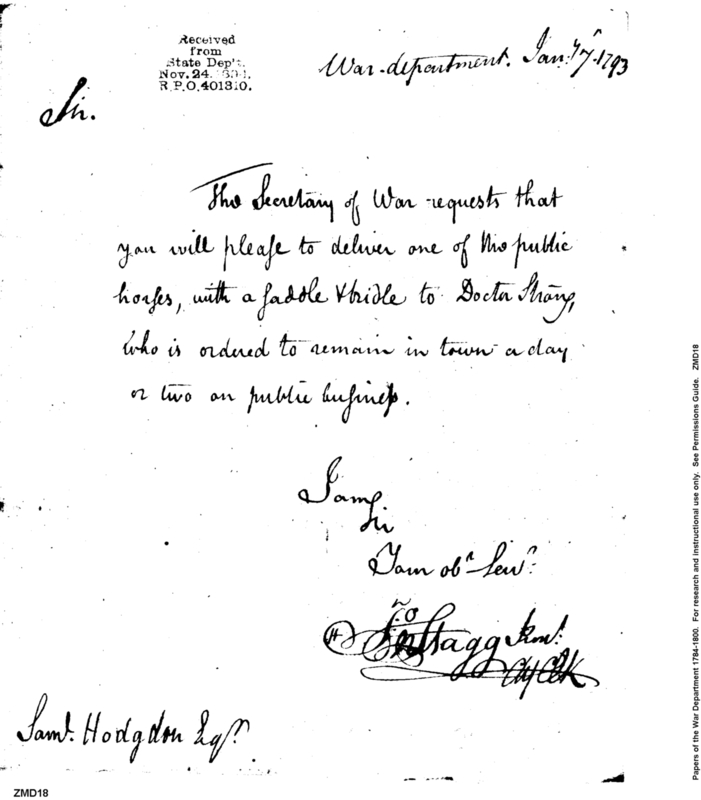 Received
from
State Dep't.
Nov. 24. 1894.
R.P.O. 401310.
War-department. Jan.y 7.th 1793
Sir.
The Secretary of War requests that
you will please to deliver one of the public
horses, with a saddle & bridle to Doctor Strong,
who is ordered to remain in town a day
or two on public business.
I am
Sir
Your obt Servt.
Jno Stagg Junr.
Chf Clk
Saml. Hodgdon Esqr.
ZMD18
Papers of the War Department 1784-1800. For research and instructional use only. See Permissions Guide. ZMD18